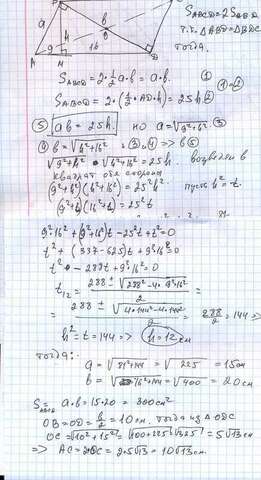 a
b
S_ABCD = 2S_ABD
т.к. ΔABD = ΔBDC
тогда.
9
16
A
H
D
S_ABCD = 2·½ a·b = a·b. ①
S_ABCD = 2·(½·AD·h) = 25h ②
①=②
⑤ ab = 25h. но a = √(9²+h²) ③
④ b = √(h²+16²) ; ③,④ => в ⑤
√(9²+h²) · √(h²+16²) = 25h. возведём в
квадрат обе стороны
(9²+h²)(h²+16²) = 25²h² пусть h² = t.
(9²+t)(16²+t) = 25²t
9²·16² + (9²+16²)t − 25²t + t² = 0
t² + (337−625)t + 9²·16² = 0
t² − 288t + 9²·16² = 0
t₁₂ = (288 ± √(288² − 4·9²·16²))/2 =
= (288 ± √(4·144² − 4·144²))/2 = 288/2 = 144 =>
h² = t = 144 => h = 12 см
тогда:
a = √(81+144) = √225 = 15см
b = √(16²+144) = √400 = 20см
S = a·b = 15·20 = 300см²
OB = OD = b/2 = 10см. тогда из ΔODC
OC = √(10²+15²) = √(100+225) = √325 = 5√13 см
=> AC = 2OC = 2·5√13 = 10√13 см.